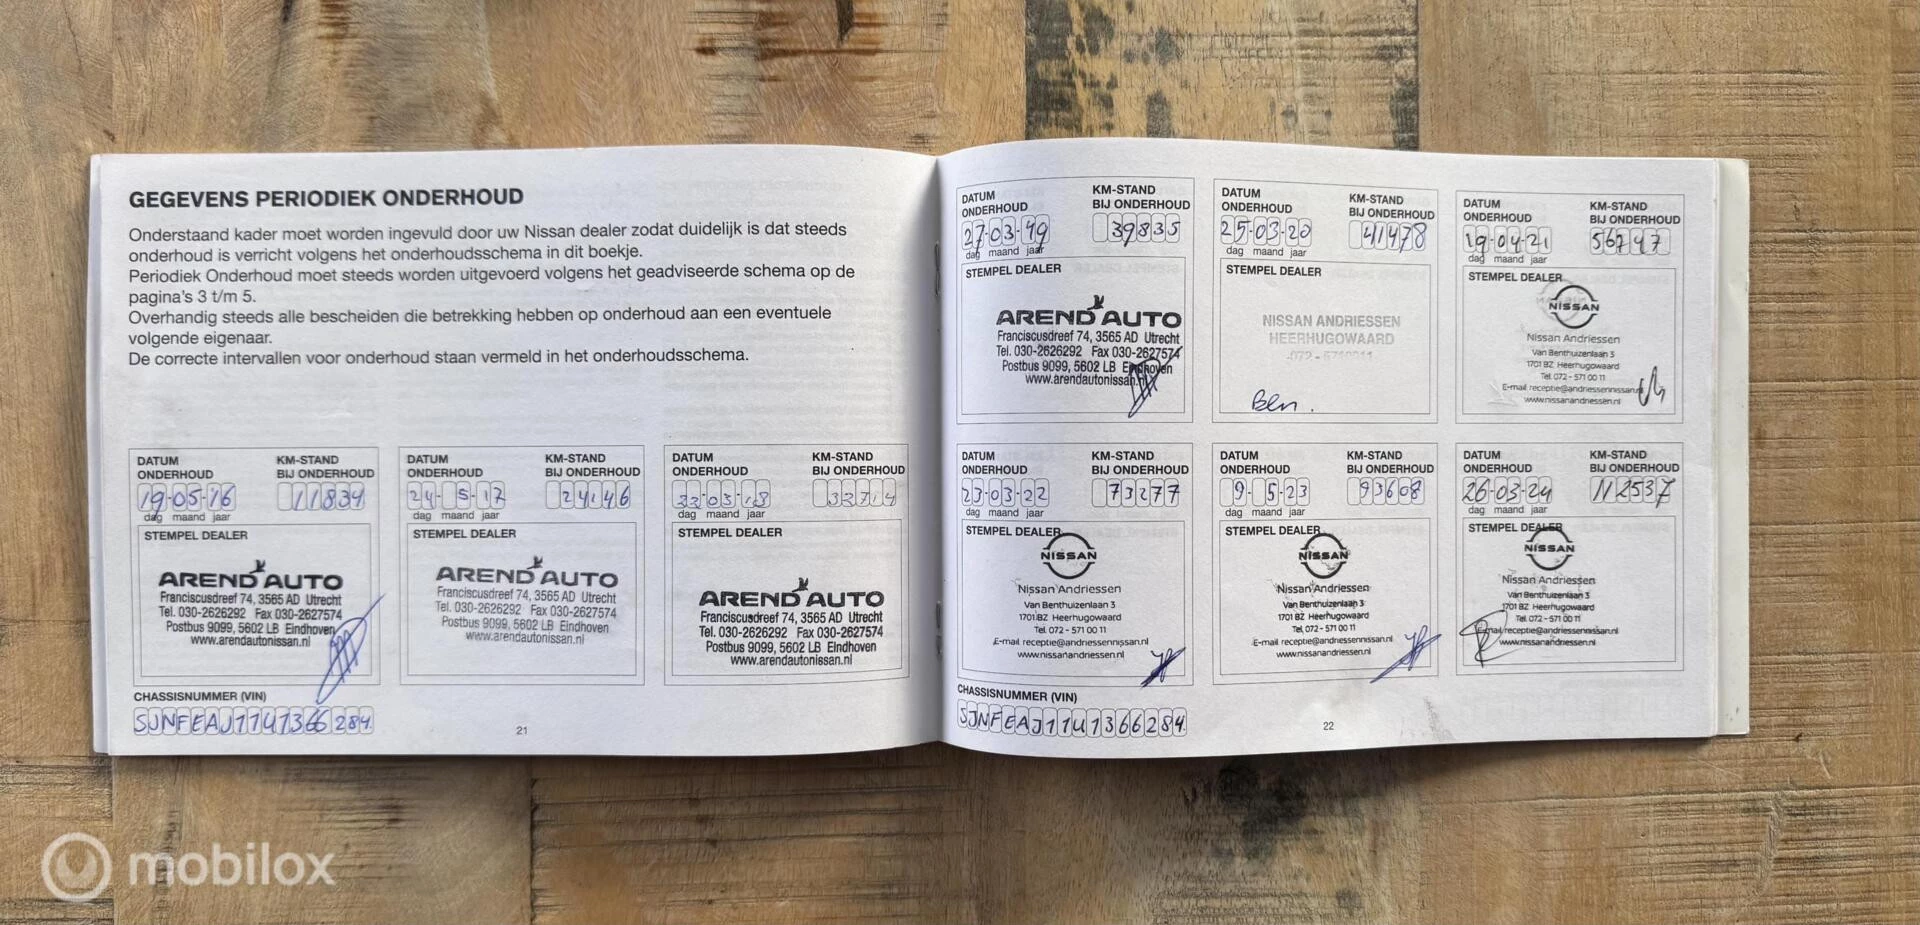 GEGEVENS PERIODIEK ONDERHOUD
Onderstaand kader moet worden ingevuld door uw Nissan dealer zodat duidelijk is dat steeds
onderhoud is verricht volgens het onderhoudsschema in dit boekje.
Periodiek Onderhoud moet steeds worden uitgevoerd volgens het geadviseerde schema op de
pagina's 3 t/m 5.
Overhandig steeds alle bescheiden die betrekking hebben op onderhoud aan een eventuele
volgende eigenaar.
De correcte intervallen voor onderhoud staan vermeld in het onderhoudsschema.
DATUM
ONDERHOUD
KM-STAND
BIJ ONDERHOUD
19-05-16
11834
dag maand jaar
STEMPEL DEALER
AREND AUTO
Franciscusdreef 74, 3565 AD Utrecht
Tel. 030-2626292 Fax 030-2627574
Postbus 9099, 5602 LB Eindhoven
www.arendautonissan.nl
DATUM
ONDERHOUD
KM-STAND
BIJ ONDERHOUD
24-5-17
24146
dag maand jaar
STEMPEL DEALER
AREND AUTO
Franciscusdreef 74, 3565 AD Utrecht
Tel. 030-2626292 Fax 030-2627574
Postbus 9099, 5602 LB Eindhoven
www.arendautonissan.nl
DATUM
ONDERHOUD
KM-STAND
BIJ ONDERHOUD
22-03-18
32714
dag maand jaar
STEMPEL DEALER
AREND AUTO
Franciscusdreef 74, 3565 AD Utrecht
Tel. 030-2626292 Fax 030-2627574
Postbus 9099, 5602 LB Eindhoven
www.arendautonissan.nl
CHASSISNUMMER (VIN)
SJNFEAJ11U1366284
21
DATUM
ONDERHOUD
KM-STAND
BIJ ONDERHOUD
27-03-19
39835
dag maand jaar
STEMPEL DEALER
AREND AUTO
Franciscusdreef 74, 3565 AD Utrecht
Tel. 030-2626292 Fax 030-2627574
Postbus 9099, 5602 LB Eindhoven
www.arendautonissan.nl
DATUM
ONDERHOUD
KM-STAND
BIJ ONDERHOUD
25-03-20
41478
dag maand jaar
STEMPEL DEALER
NISSAN ANDRIESSEN
HEERHUGOWAARD
Ben.
DATUM
ONDERHOUD
KM-STAND
BIJ ONDERHOUD
19-04-21
56747
dag maand jaar
STEMPEL DEALER
NISSAN
Nissan Andriessen
Van Benthuizenlaan 3
1701 BZ Heerhugowaard
Tel. 072 - 571 00 11
E-mail receptie@andriessennissan.nl
www.nissanandriessen.nl
DATUM
ONDERHOUD
KM-STAND
BIJ ONDERHOUD
23-03-22
73277
dag maand jaar
STEMPEL DEALER
NISSAN
Nissan Andriessen
Van Benthuizenlaan 3
1701 BZ Heerhugowaard
Tel. 072 - 571 00 11
E-mail receptie@andriessennissan.nl
www.nissanandriessen.nl
DATUM
ONDERHOUD
KM-STAND
BIJ ONDERHOUD
9-5-23
93608
dag maand jaar
STEMPEL DEALER
NISSAN
Nissan Andriessen
Van Benthuizenlaan 3
1701 BZ Heerhugowaard
Tel. 072 - 571 00 11
E-mail receptie@andriessennissan.nl
www.nissanandriessen.nl
DATUM
ONDERHOUD
KM-STAND
BIJ ONDERHOUD
26-03-24
112537
dag maand jaar
STEMPEL DEALER
NISSAN
Nissan Andriessen
Van Benthuizenlaan 3
1701 BZ Heerhugowaard
Tel. 072 - 571 00 11
E-mail receptie@andriessennissan.nl
www.nissanandriessen.nl
CHASSISNUMMER (VIN)
SJNFEAJ11U1366284
22
mobilox